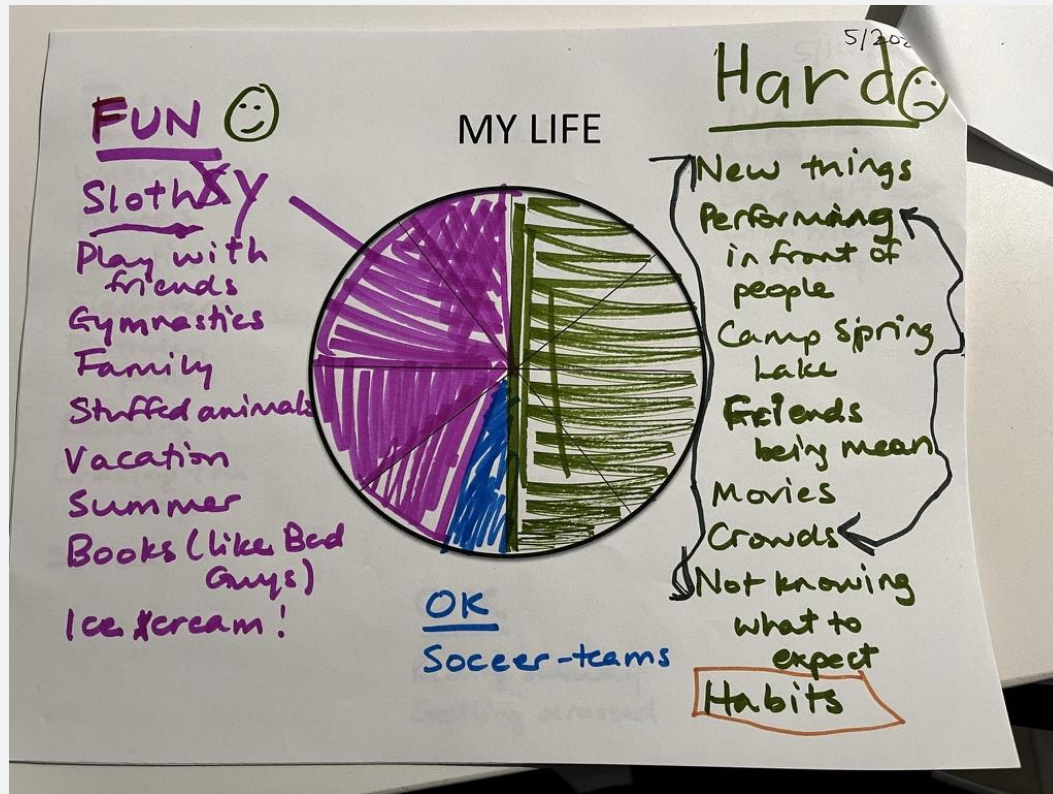 5/20
Hard
FUN
MY LIFE
Slothy
Play with
friends
Gymnastics
Family
Stuffed animals
Vacation
Summer
Books (like Bad
Guys)
Ice cream!
OK
Soccer-teams
New things
Performing
in front of
people
Camp Spring
Lake
Friends
being mean
Movies
Crowds
Not knowing
what to
expect
Habits